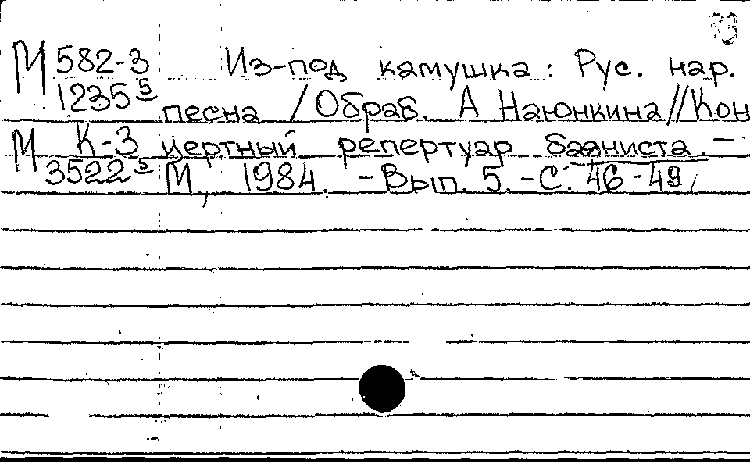 М 582-3 Из-под камушка: Рус. нар.
1235 5 песня / Обраб. А Наюнкина // Кон
М К-3 цертный репертуар баяниста. -
3522 5 М., 1984. - Вып. 5. - С. 46-49.